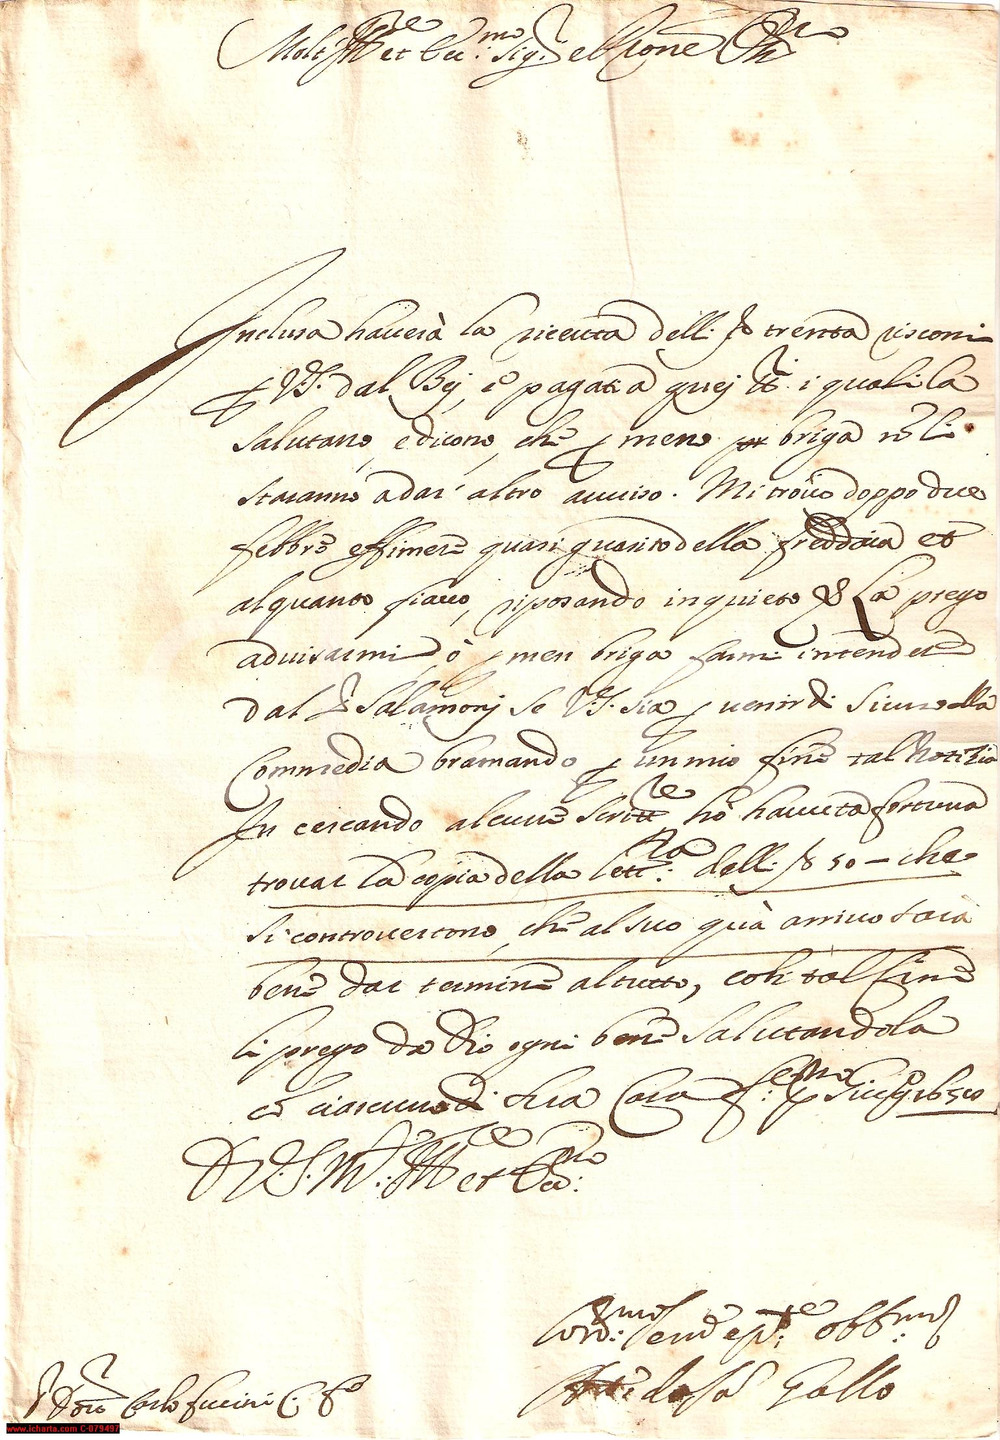 Molt Ill.re et Ecc.mo Sig.r
Inclusa haverà la riceuta delli trenta risconi
p VS. dal Bej, e pagati à quej i quali la
salutano, e dicono, che p meno briga nō li
staranno a dar' altro avviso. Mi trovo doppo due
febbre effimere quasi guarito della freddaia et
alquanto fiacco, riposando inquieto La prego
advisarmi ò p men briga farmi intendere
dal Sr Salamonj se VS. sia p venir di sicuro alla
Commedia bramando p un mio fine tal Notizia
In cercando alcune Scritt.re hò havuta fortuna
trovar la copia della lett.ra delli 50 – che
si controvertono, che al suo quà arrivo sarà
bene dar termine al tutto, con tal fine
li prego da Dio ogni bene salutandola
cō ciascuno di sua Casa
D VS. M. Ill.re et Ecc.ma
obb.mo
Gallo
Carlo
www.icharta.com C-079497